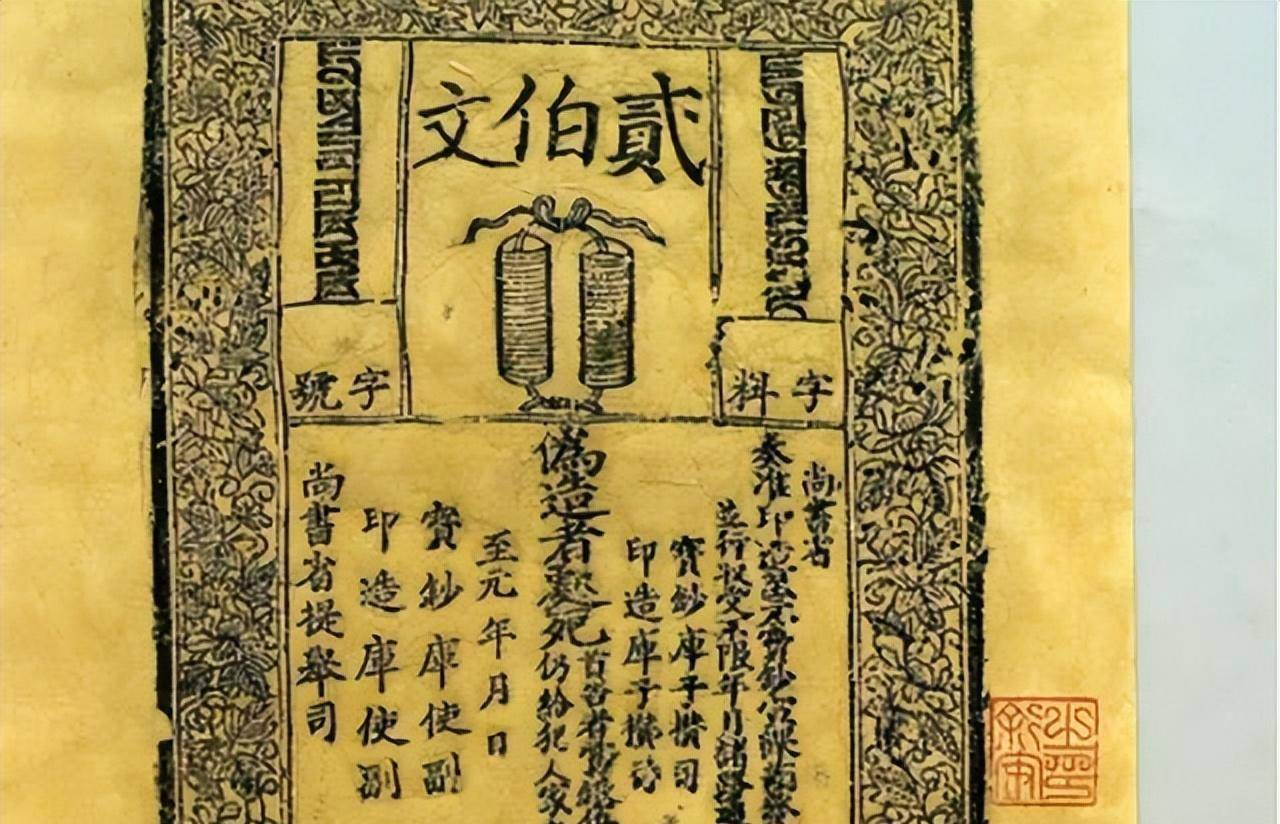 貳伯文
字料
字號
尚書省
奏准印造至元寶鈔宣課
並行收受不限年月諸路通
寶鈔庫子攢司
印造庫子攢司
偽造者處死
首告者賞銀伍
仍給犯人家
至元年月日
寶鈔庫使副
印造庫使副
尚書省提舉司